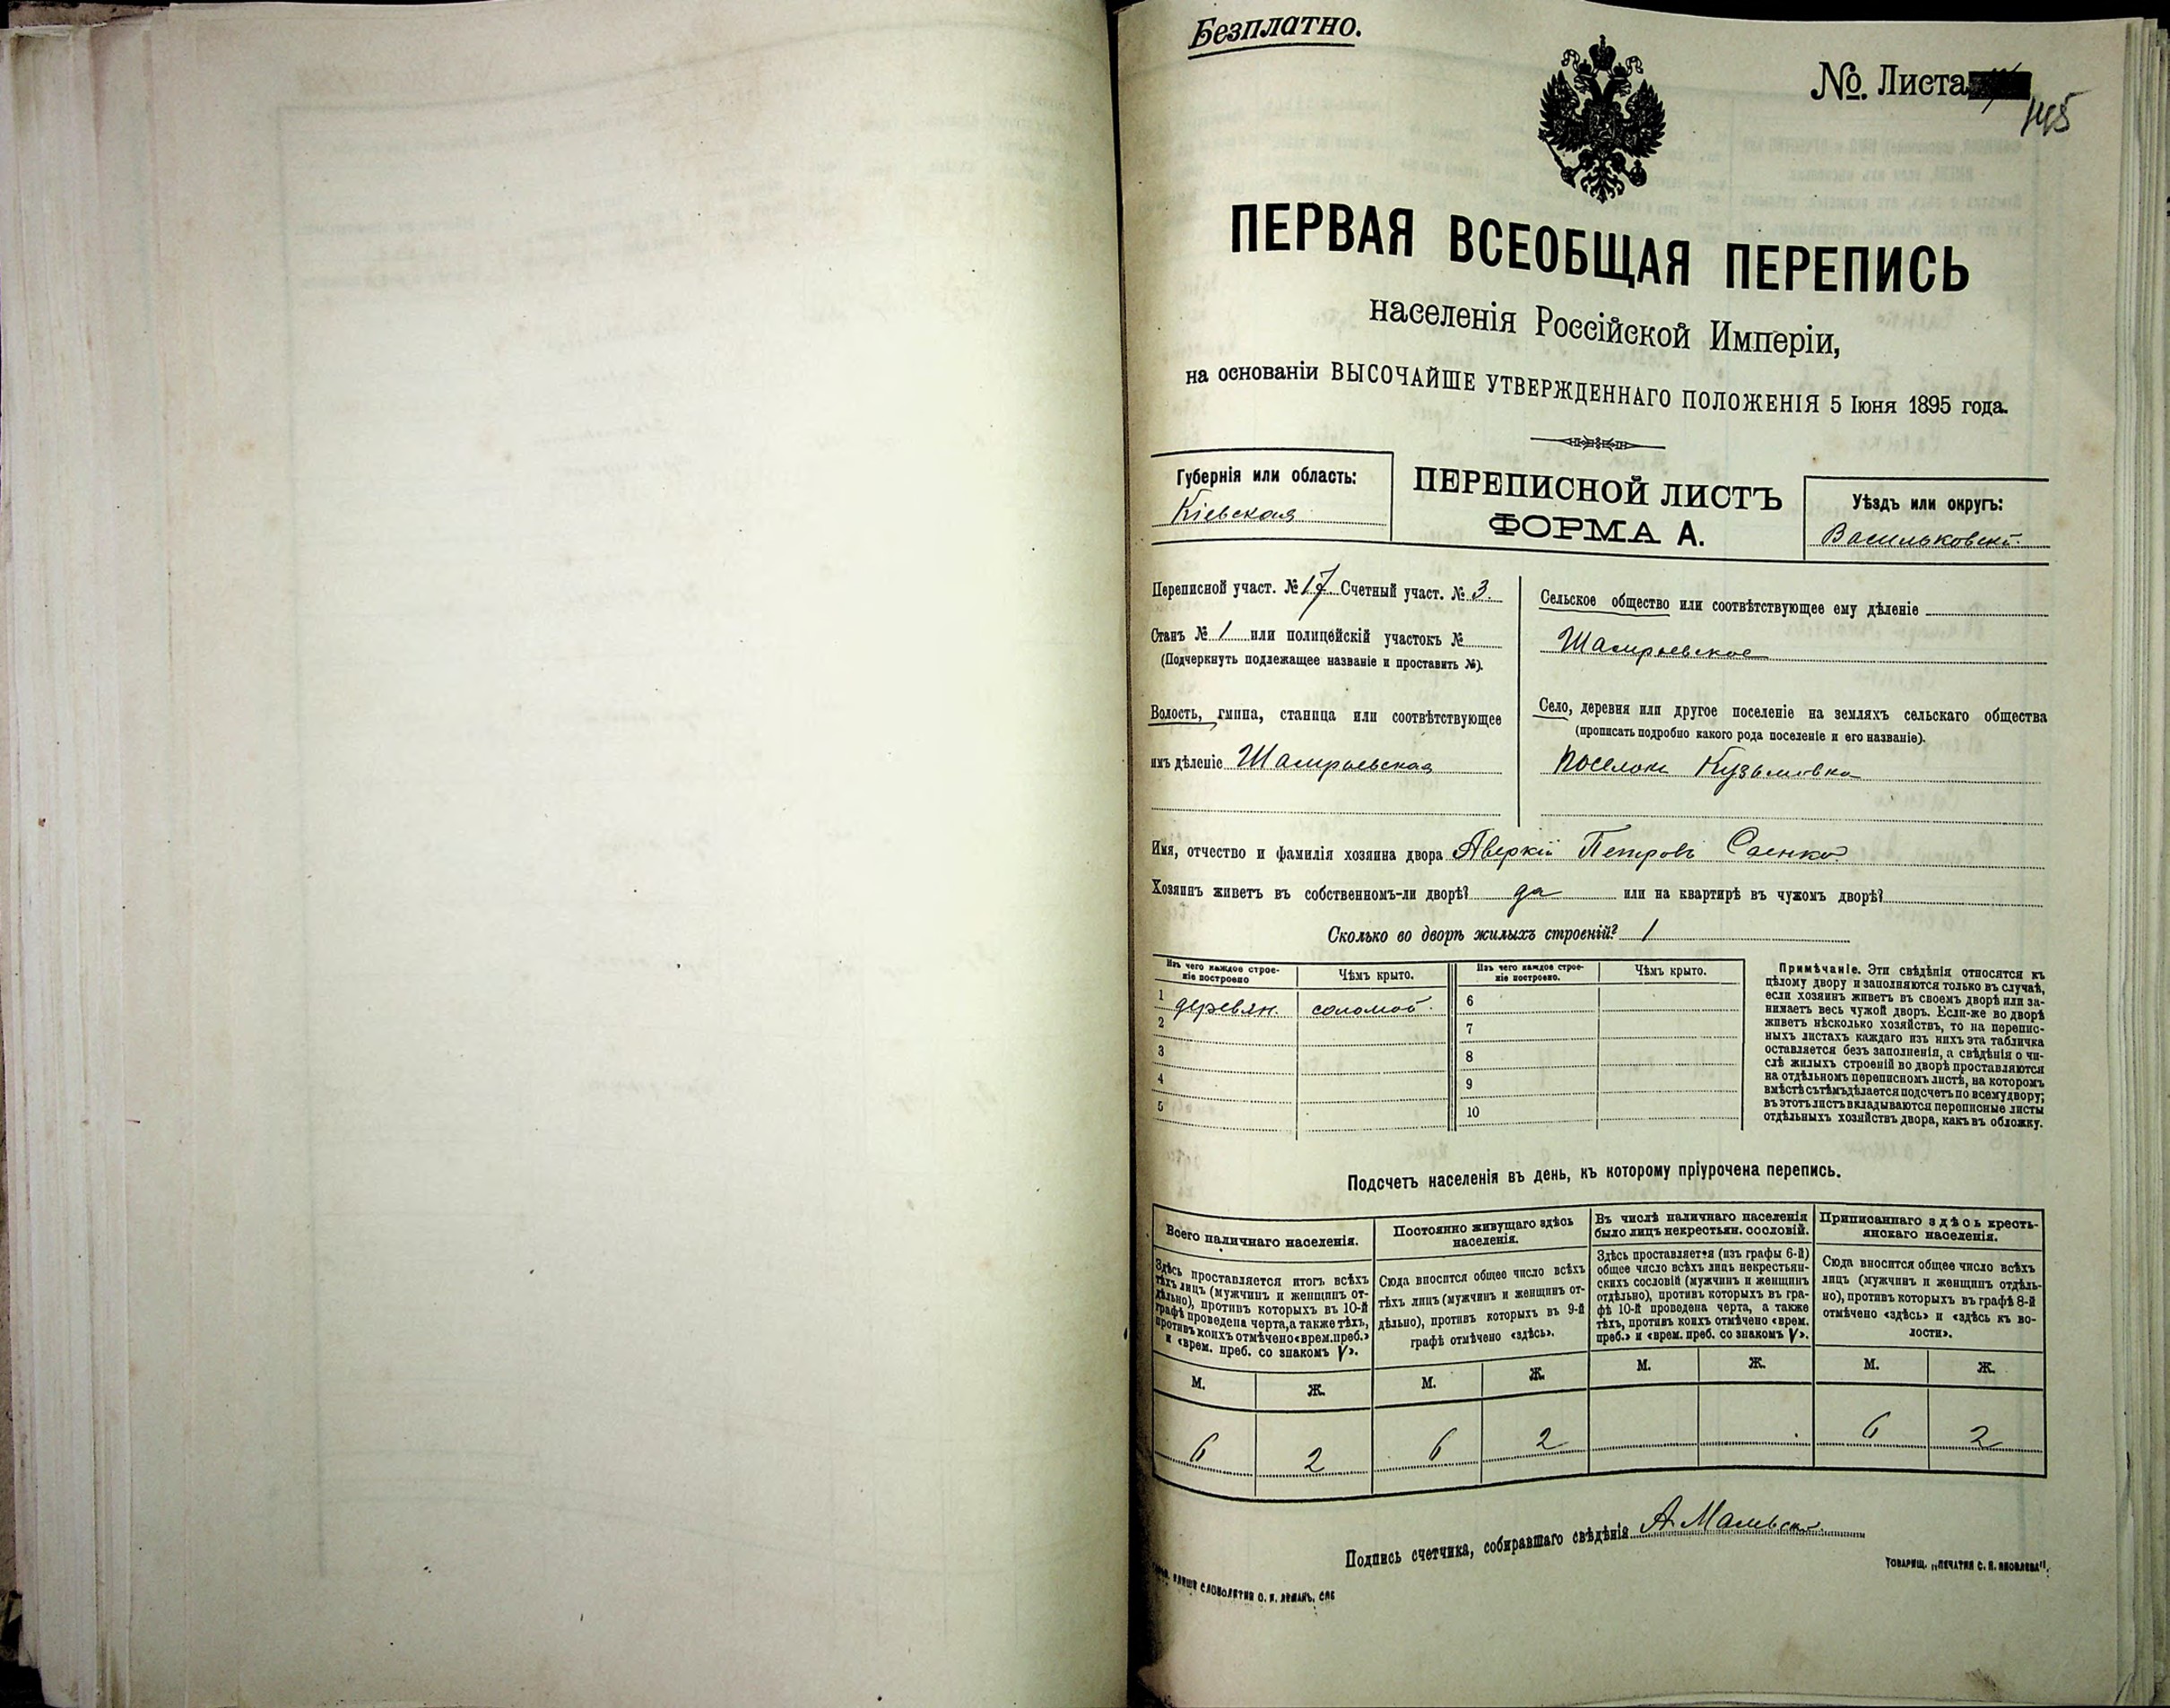 Безплатно.
№. Листа
145
ПЕРВАЯ ВСЕОБЩАЯ ПЕРЕПИСЬ
населенія Россійской Имперіи,
на основаніи ВЫСОЧАЙШЕ УТВЕРЖДЕННАГО ПОЛОЖЕНІЯ 5 Іюня 1895 года.
Губернія или область:
Кіевская
ПЕРЕПИСНОЙ ЛИСТЪ
ФОРМА А.
Уѣздъ или округъ:
Васильковскі.
Переписной участ. № 17 Счетный участ. № 3.
Станъ № 1 или полицейскій участокъ №
(Подчеркнуть подлежащее названіе и проставить №).
Волость, гмина, станица или соотвѣтствующее
имъ дѣленіе Шамраевская
Сельское общество или соотвѣтствующее ему дѣленіе
Шамраевское
Село, деревня или другое поселеніе на земляхъ сельскаго общества
(прописать подробно какого рода поселеніе и его названіе).
Поселок Кузьмовка
Имя, отчество и фамилія хозяина двора Аверкій Петровъ Саенко
Хозяинъ живетъ въ собственномъ-ли дворѣ? да или на квартирѣ въ чужомъ дворѣ?
Сколько во дворѣ жилыхъ строеній? 1
Изъ чего каждое строе-
ніе построено
Чѣмъ крыто.
1 деревян. соломой.
2
3
4
5
Изъ чего каждое строе-
ніе построено.
Чѣмъ крыто.
6
7
8
9
10
Примѣчаніе. Эти свѣдѣнія относятся къ
цѣлому двору и заполняются только въ случаѣ,
если хозяинъ живетъ въ своемъ дворѣ или за-
нимаетъ весь чужой дворъ. Если-же во дворѣ
живетъ нѣсколько хозяйствъ, то на перепис-
ныхъ листахъ каждаго изъ нихъ эта табличка
оставляется безъ заполненія, а свѣдѣнія о чи-
слѣ жилыхъ строеній во дворѣ проставляются
на отдѣльномъ переписномъ листѣ, на которомъ
вмѣстѣ съ тѣмъ дѣлается подсчетъ по всему двору;
въ этотъ листъ вкладываются переписные листы
отдѣльныхъ хозяйствъ двора, какъ въ обложку.
Подсчетъ населенія въ день, къ которому пріурочена перепись.
Всего наличнаго населенія.
Здѣсь проставляется итогъ всѣхъ
тѣхъ лицъ (мужчинъ и женщинъ от-
дѣльно), противъ которыхъ въ 10-й
графѣ проведена черта, а также тѣхъ,
противъ коихъ отмѣчено «врем. преб.»
и «врем. преб. со знакомъ V».
М. Ж.
6 2
Постоянно живущаго здѣсь
населенія.
Сюда вносится общее число всѣхъ
тѣхъ лицъ (мужчинъ и женщинъ от-
дѣльно), противъ которыхъ въ 9-й
графѣ отмѣчено «здѣсь».
М. Ж.
6 2
Въ числѣ наличнаго населенія
было лицъ некрестьян. сословій.
Здѣсь проставляется (изъ графы 6-й)
общее число всѣхъ лицъ некрестьян-
скихъ сословій (мужчинъ и женщинъ
отдѣльно), противъ которыхъ въ гра-
фѣ 10-й проведена черта, а также
тѣхъ, противъ коихъ отмѣчено «врем.
преб.» и «врем. преб. со знакомъ V».
М. Ж.
Приписаннаго здѣсь кресть-
янскаго населенія.
Сюда вносится общее число всѣхъ
лицъ (мужчинъ и женщинъ отдѣль-
но), противъ которыхъ въ графѣ 8-й
отмѣчено «здѣсь» и «здѣсь къ во-
лости».
М. Ж.
6 2
Подпись счетчика, собиравшаго свѣдѣнія А.
СЛОВОЛИТНЯ О. И. ЛЕМАНЪ, СПБ
ТОВАРИЩ. „ПЕЧАТНЯ С. П. ЯКОВЛЕВА“.